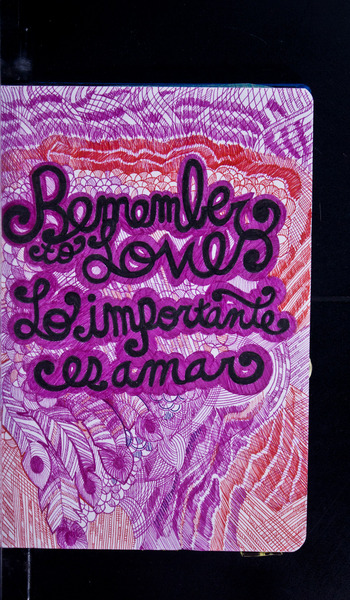 Remember
to Love
Lo importante
es amar